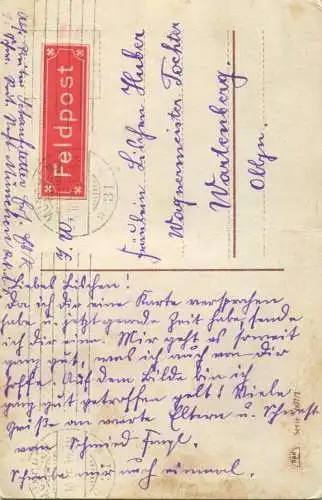 Feldpost
S. B.
Fräulein Lischen Huber
Wagnermeister Tochter
Wartenberg.
Obby.
Liebes Lischen!
Da ich dir eine Karte versprochen
habe u. jetzt gerade Zeit habe, sende
ich dir eine. Mir geht es soweit
ganz gut, was ich auch von dir
hoffe. Auf dem Bilde bin ich
ganz gut getroffen gelt! Viele
Grüße an werte Eltern u. Schwest
von Schmied
Schreibe mir noch einmal.
31
Serie